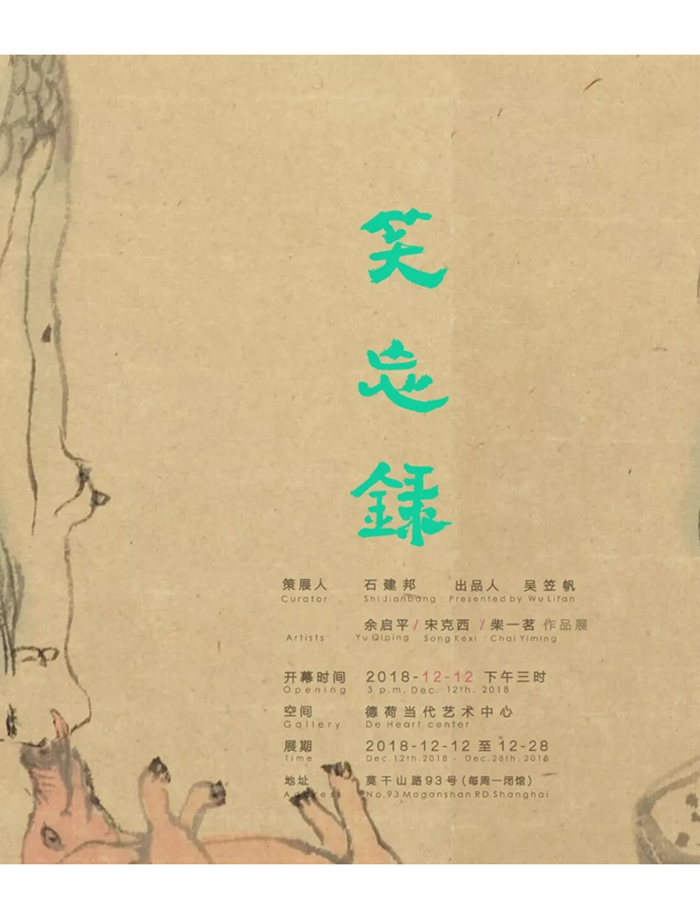 笑忘録
策展人 石建邦 出品人 吴笠帆
Curator Shi Jianbang Presented by Wu Lifan
余启平 / 宋克西 / 柴一茗 作品展
Artists Yu Qiping Song Kexi Chai Yiming
开幕时间 2018-12-12 下午三时
Opening 3 p.m. Dec. 12th. 2018
空间 德荷当代艺术中心
Gallery De Heart center
展期 2018-12-12 至 12-28
Time Dec.12th.2018 - Dec.28th.2018
地址 莫干山路93号(每周一闭馆)
Address No.93 Moganshan RD.Shanghai